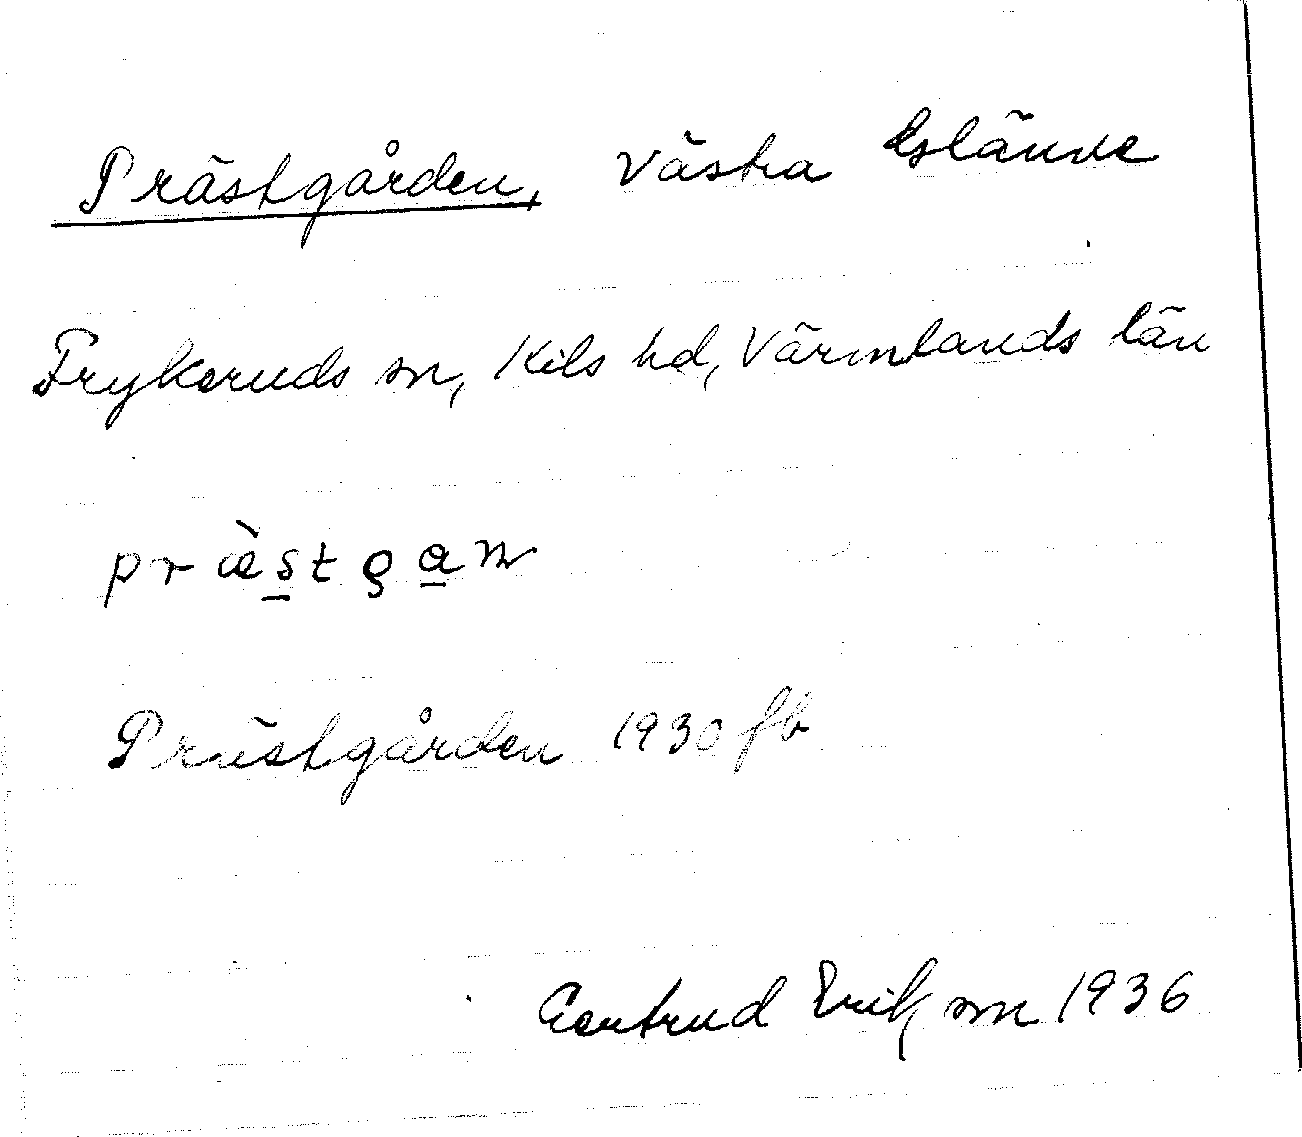 Prästgården, Västra
Frykeruds sn, Kils hd, Värmlands län
Prästgården 1930 fb
Gertrud Eriksson 1936